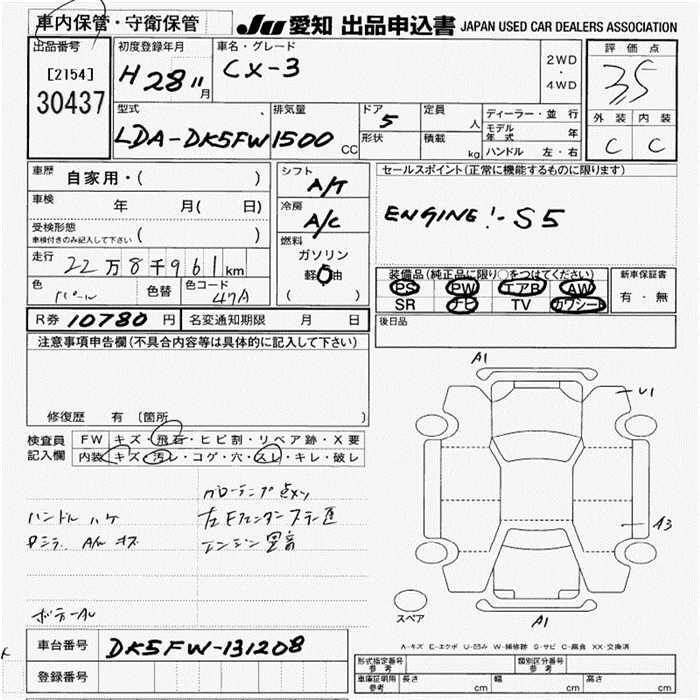 車内保管・守衛保管
JU 愛知 出品申込書 JAPAN USED CAR DEALERS ASSOCIATION
出品番号
[2154]
30437
初度登録年月
H 28 11 月
車名・グレード
CX-3
2WD
・
4WD
評価点
3.5
外装 内装
C C
型式
LDA-DK5FW
排気量
1500 CC
ドア
5
形状
定員
人
積載
kg
ディーラー・並行
モデル年式 年
ハンドル 左・右
車歴
自家用・( )
車検
年 月( 日)
受検形態
車検付きのみ記入して下さい ( )
走行
22万8千961km
色
パール
色替
色コード
47A
シフト
A/T
冷房
A/C
燃料
ガソリン
軽油
( )
セールスポイント(正常に機能するものに限ります)
ENGINE!-S5
装備品(純正品に限り○をつけてください)
PS PW エアB AW
SR ナビ TV カワシート
新車保証書
有・無
後日品
R券 10780 円
名変通知期限 月 日
注意事項申告欄(不具合内容等は具体的に記入して下さい)
修復歴 有 (箇所 )
検査員記入欄
FW キズ・飛石・ヒビ割・リペア跡・X要
内装 キズ・汚レ・コゲ・穴・スレ・キレ・破レ
ハンドル ハゲ
エンジン異音
A1
U1
A3
A1
スペア
A-キズ E-エクボ U-凹み W-補修跡 S-サビ C-腐食 XX-交換済
車台番号
DK5FW-131208
登録番号
形式指定番号
参考
類別区分番号
参考
車庫証明用
参考
長さ cm
幅 cm
高さ cm